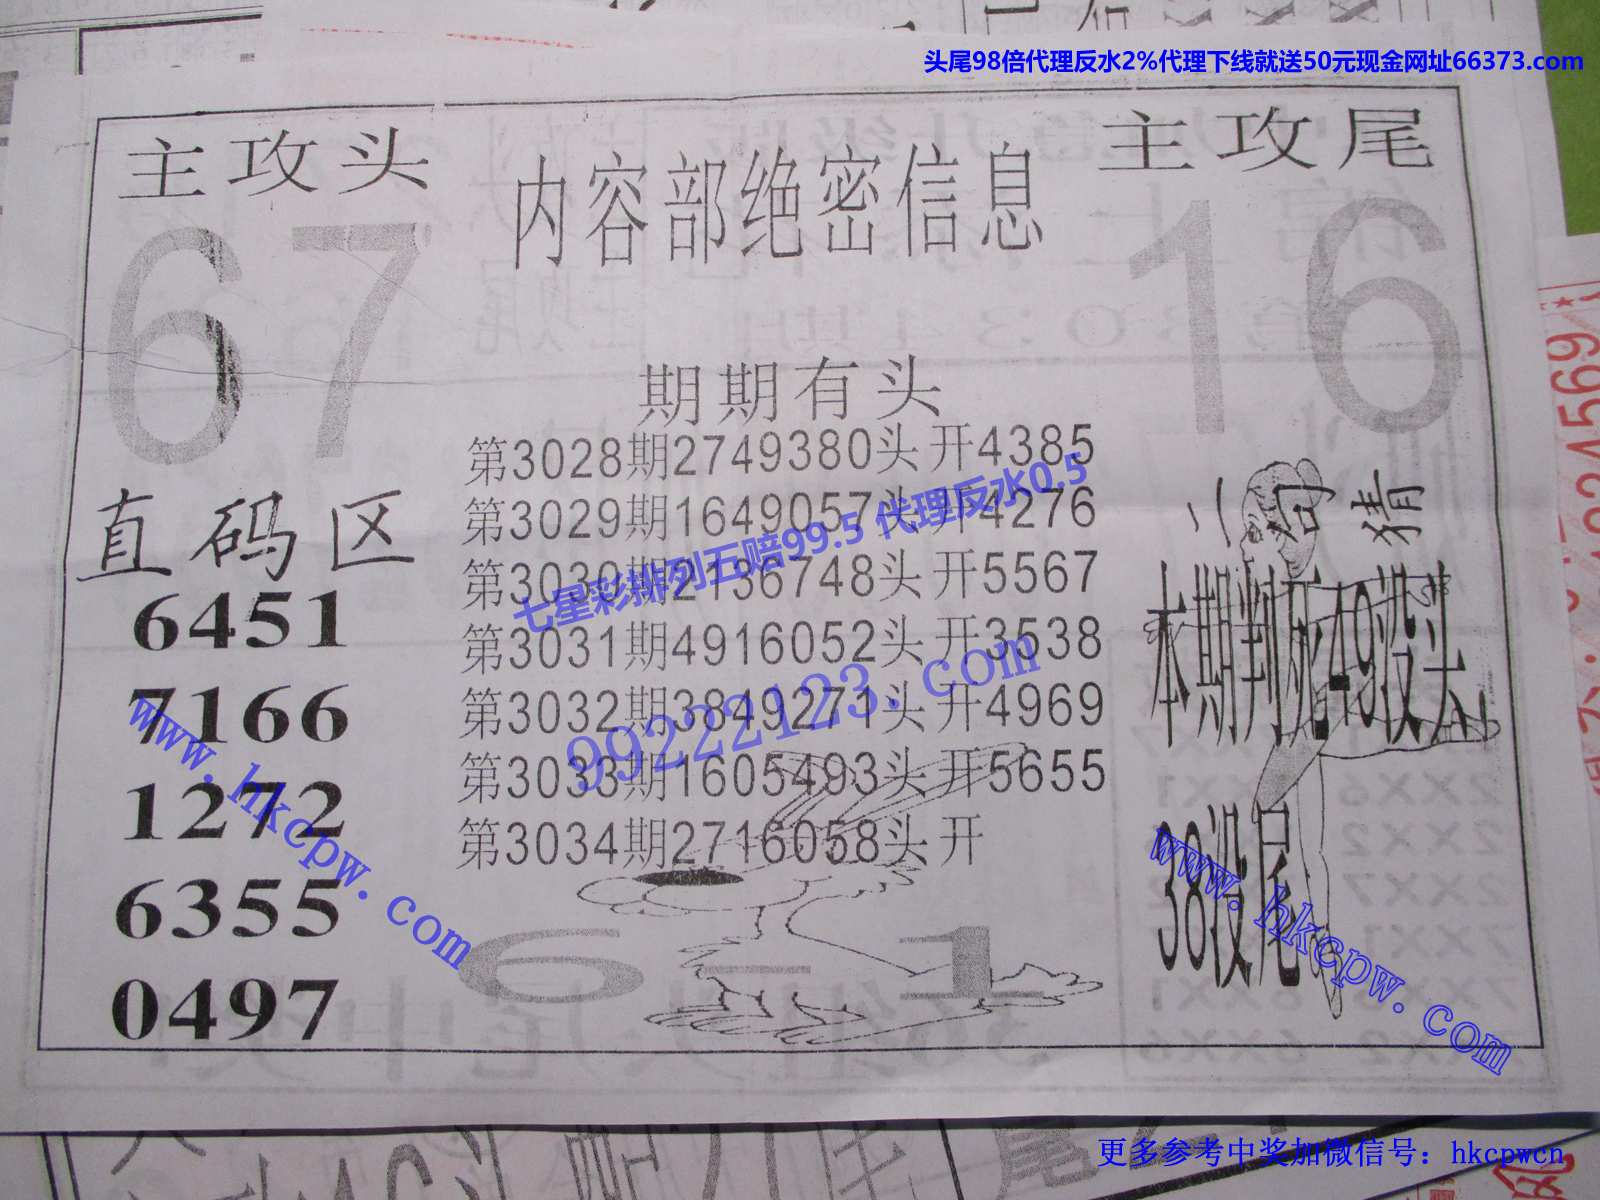 头尾98倍代理反水2%代理下线就送50元现金网址66373.com
主攻头
67
内容部绝密信息
主攻尾
16
期期有头
第3028期2749380头开4385
第3029期1649057头开4276
第3030期2136748头开5567
第3031期4916052头开3538
第3032期3849271头开4969
第3033期1605493头开5655
第3034期2716058头开
七星彩排列五赔99.5 代理反水0.5
99222123.com
直码区
6451
7166
1272
6355
0497
www.hkcpw.com
6-1
二句猜
本期判死49没头
38没尾
www.hkcpw.com
更多参考中奖加微信号：hkcpwcn